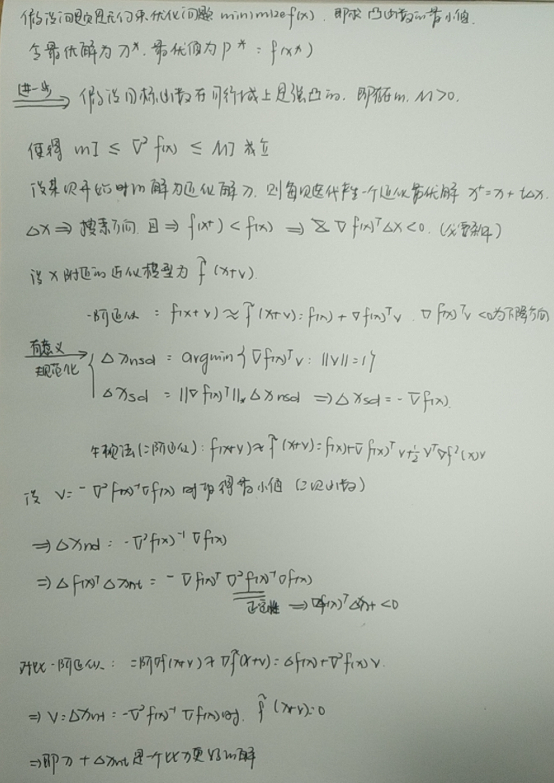 假设问题是无约束优化问题 minimize f(x). 即求凸函数的最小值.
令最优解为 x*. 最优值为 p* = f(x*)
进一步 ⟹ 假设目标函数在可行域上是强凸的. 即存在 m, M>0.
使得 mI ≤ ∇²f(x) ≤ MI 成立
设某次开始时的解为近似解 x. 则每次迭代产生一个近似最优解 x⁺=x+tΔx.
Δx ⟹ 搜索方向. 且 ⟹ f(x⁺) < f(x) ⟹ ∇f(x)ᵀΔx<0. (必要条件)
设 x 附近的近似模型为 f̂(x+v).
一阶近似: f(x+v) ≈ f̂(x+v) = f(x) + ∇f(x)ᵀv. ∇f(x)ᵀv <0为下降方向
有意义 规范化 ⟹ { Δxnsd = argmin{∇f(x)ᵀv : ||v||=1}
Δxsd = ||∇f(x)ᵀ||* Δxnsd ⟹ Δxsd = -∇f(x).
牛顿法(二阶近似): f(x+v) ≈ f̂(x+v) = f(x)+∇f(x)ᵀv+½vᵀ∇f²(x)v
设 v = -∇²f(x)⁻¹∇f(x) 时取得最小值 (二次函数)
⟹ Δxnd = -∇²f(x)⁻¹∇f(x)
⟹ Δf(x)ᵀΔxnt = -∇f(x)ᵀ∇²f(x)⁻¹∇f(x)
正定性 ⟹ ∇f(x)ᵀΔxnt <0
对比一阶近似: 二阶∇f(x+v) ≈ ∇f̂(x+v) = Δf(x)+∇²f(x)v.
⟹ v=Δxnt = -∇²f(x)⁻¹∇f(x)时. f̂(x+v)=0
⟹ 即 x+Δxnt 是一个比 x 更好的解